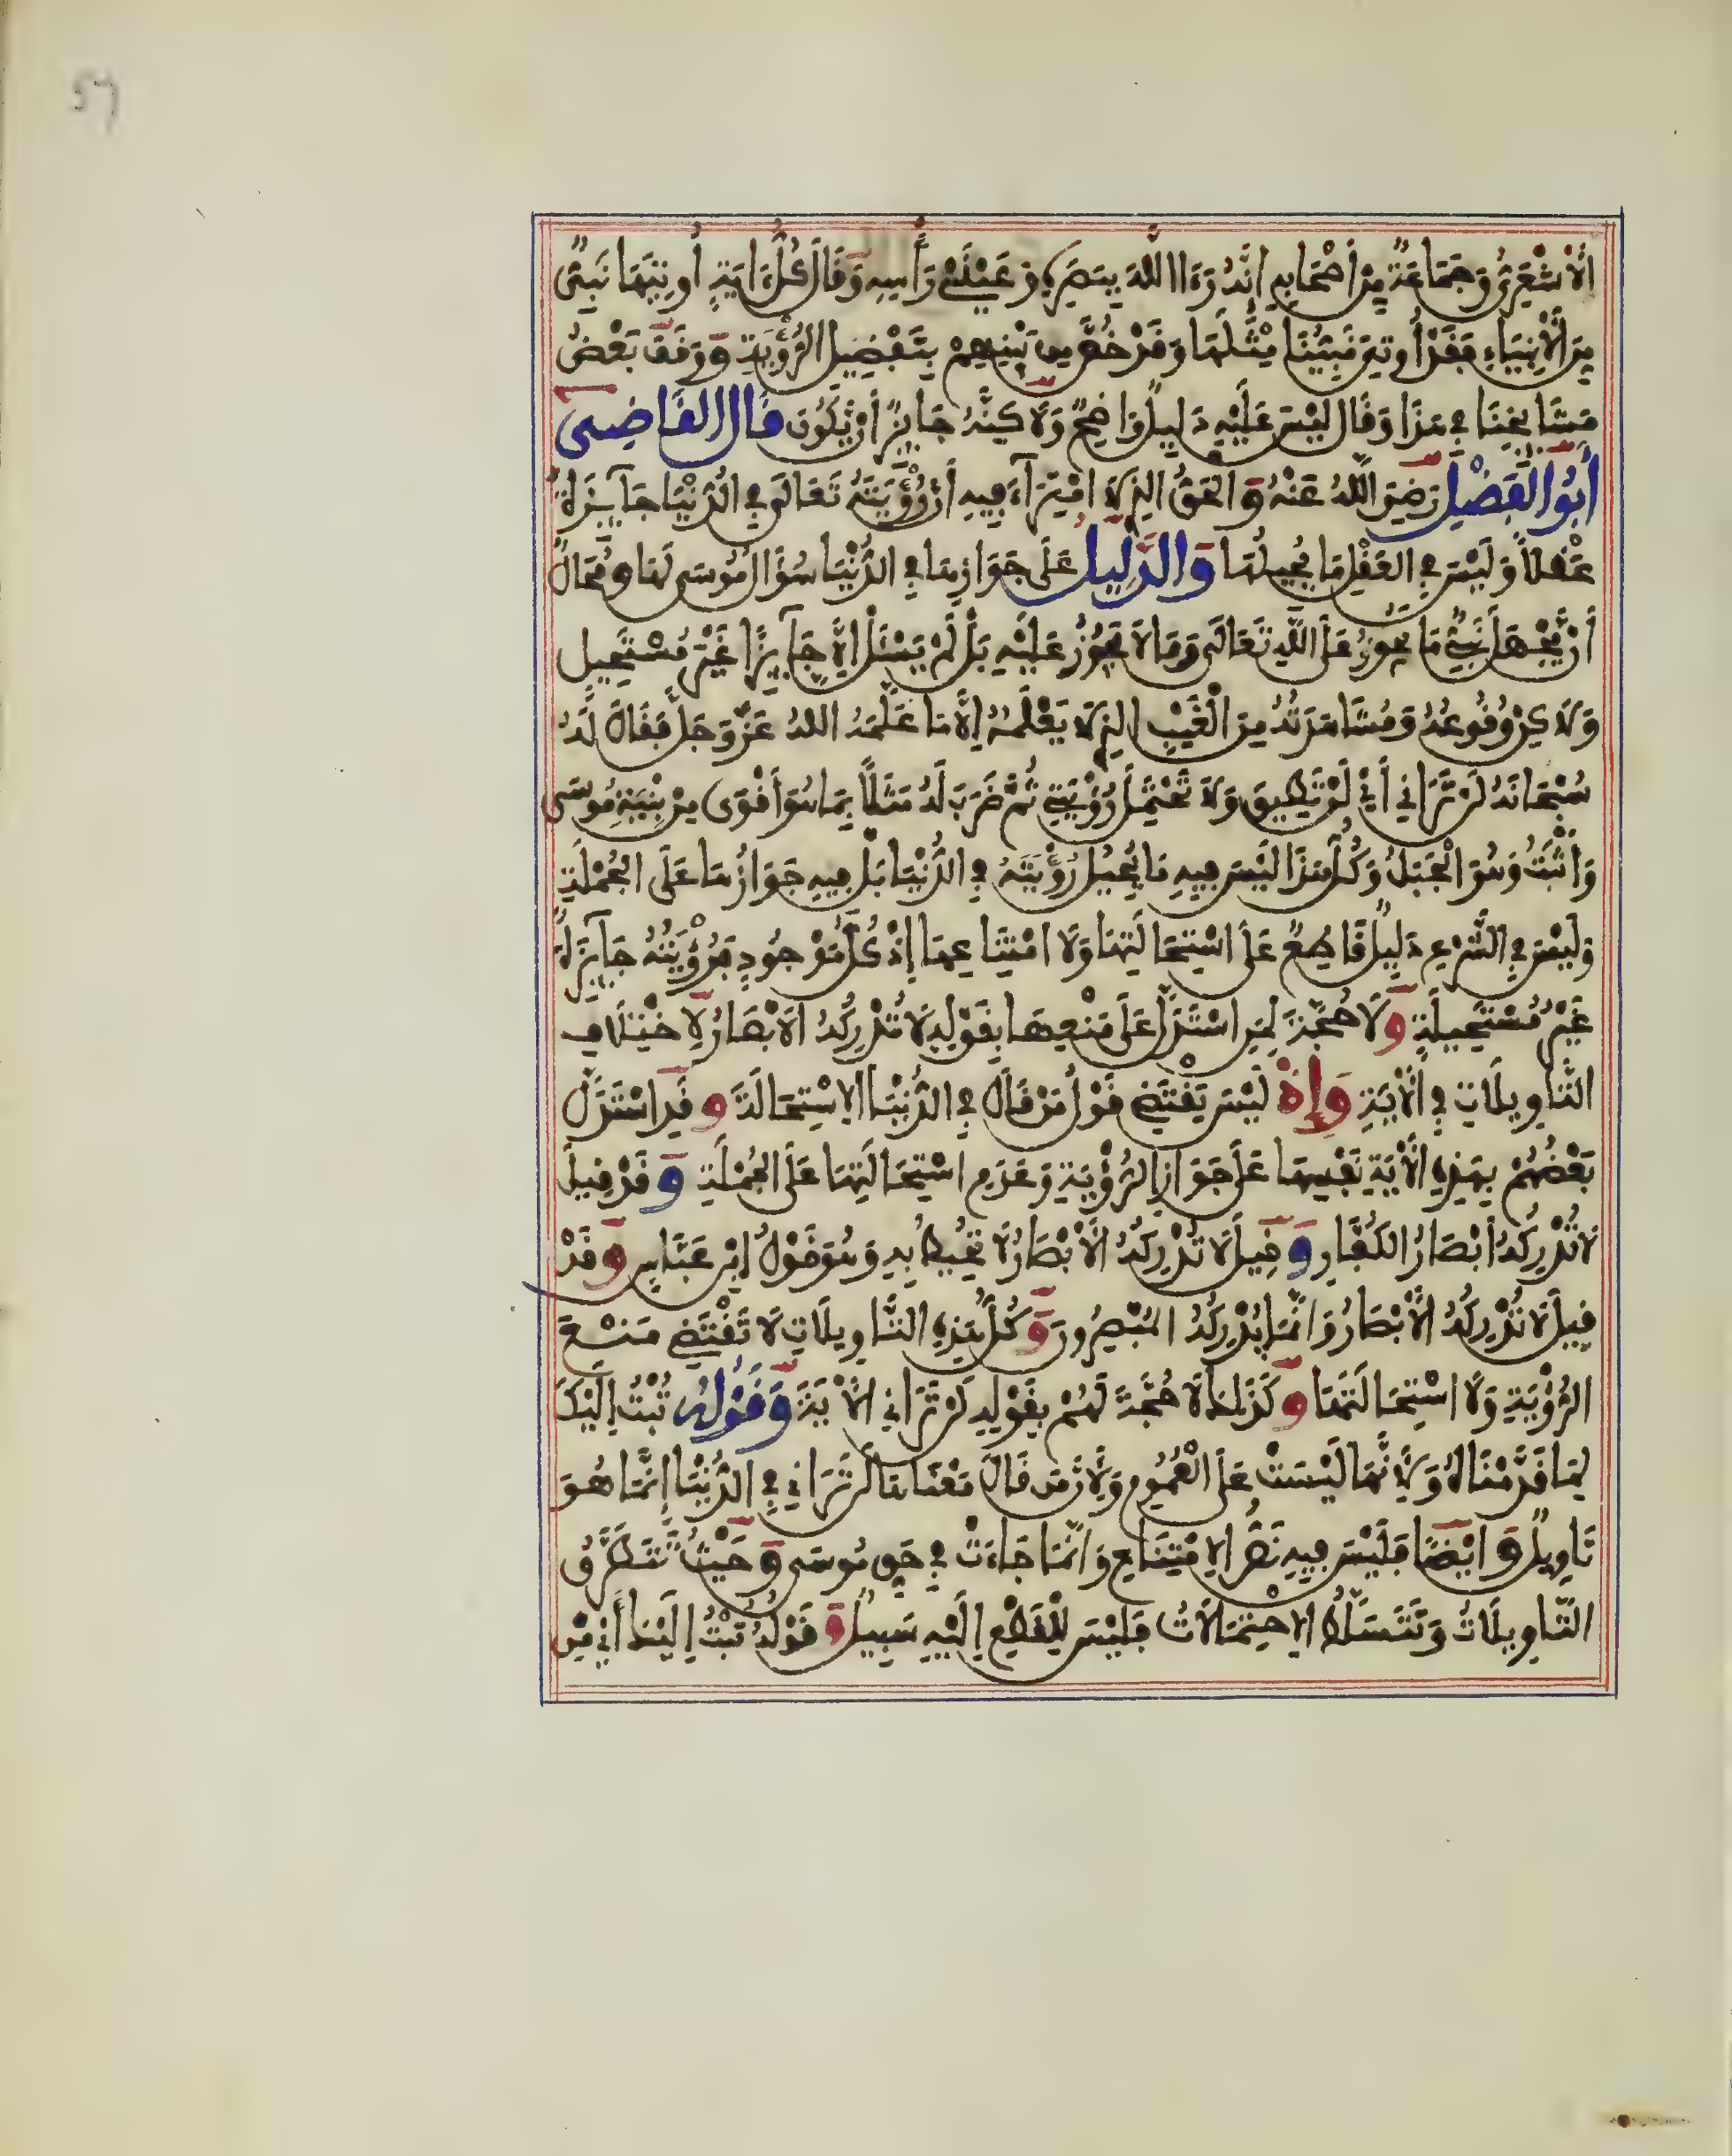 57
الْأَشْعَرِيُّ وَجَمَاعَةٌ مِنْ أَصْحَابِهِ إِنَّهُ رَءَا اللَّهَ بِبَصَرِهِ وَعَيْنَيْ رَأْسِهِ وَقَالَ كُلُّ ءَايَةٍ أُوتِيَهَا نَبِيٌّ
مِنَ الْأَنْبِيَاءِ فَقَدْ أُوتِيَ نَبِيُّنَا مِثْلَهَا وَقَدْ خُصَّ مِن بَيْنِهِمْ بِتَفْضِيلِ الرُّؤْيَةِ وَوَقَفَ بَعْضُ
مَشَايِخِنَا فِي هَذَا وَقَالَ لَيْسَ عَلَيْهِ دَلِيلٌ وَاضِحٌ وَلَاكِنَّهُ جَايِزٌ أَنْ يَكُونَ قَالَ الْقَاضِي
أَبُو الْفَضْلِ رَضِيَ اللَّهُ عَنْهُ وَالْحَقُّ الذِي لَا امْتِرَآءَ فِيهِ أَنَّ رُؤْيَتَهُ تَعَالَى فِي الدُّنْيَا جَآيِزَةٌ
عَقْلًا وَلَيْسَ فِي الْعَقْلِ مَا يُحِيلُهَا وَالدَّلِيلُ عَلَى جَوَازِهَا فِي الدُّنْيَا سُؤَالُ مُوسَى لَهَا وَمُحَالٌ
أَنْ يَجْهَلَ نَبِيٌّ مَا يَجُوزُ عَلَى اللَّهِ تَعَالَى وَمَا لَا يَجُوزُ عَلَيْهِ بَلْ لَمْ يَسْئَلْ إِلَّا جَآيِزًا غَيْرَ مُسْتَحِيلٍ
وَلَاكِنْ وُقُوعُهُ وَمُشَاهَدَتُهُ مِنَ الْغَيْبِ الذِي لَا يَعْلَمُهُ إِلَّا مَنْ عَلَّمَهُ اللهُ عَزَّ وَجَلَّ فَقَالَ لَهُ
سُبْحَانَهُ لَنْ تَرَانِي أَيْ لَنْ تُطِيقَ وَلَا تَحْتَمِلُ رُؤْيَتِي ثُمَّ ضَرَبَ لَهُ مَثَلًا بِمَا هُوَ أَقْوَى مِنْ بِنْيَةِ مُوسَى
وَأَثْبَتُ وَهُوَ الْجَبَلُ وَكُلُّ هَذَا لَيْسَ فِيهِ مَا يُحِيلُ رُؤْيَتَهُ فِي الدُّنْيَا بَلْ فِيهِ جَوَازُهَا عَلَى الْجُمْلَةِ
وَلَيْسَ فِي الشَّرْعِ دَلِيلٌ قَاطِعٌ عَلَى اسْتِحَالَتِهَا وَلَا امْتِنَاعِهَا إِذْ كُلُّ مَوْجُودٍ فَرُؤْيَتُهُ جَآيِزَةٌ
غَيْرُ مُسْتَحِيلَةٍ وَلَا حُجَّةَ لِمَنِ اسْتَدَلَّ عَلَى مَنْعِهَا بِقَوْلِهِ لَا تُدْرِكُهُ الْأَبْصَارُ لِاخْتِلَافِ
التَّأْوِيلَاتِ فِي الْآيَةِ وَإِذْ لَيْسَ يَقْتَضِي قَوْلُ مَنْ قَالَ فِي الدُّنْيَا الِاسْتِحَالَةَ وَقَدِ اسْتَدَلَّ
بَعْضُهُمْ بِهَذِهِ الْآيَةِ نَفْسِهَا عَلَى جَوَازِ الرُّؤْيَةِ وَعَدَمِ اسْتِحَالَتِهَا عَلَى الْجُمْلَةِ وَقَدْ قِيلَ
لَا تُدْرِكُهُ أَبْصَارُ الْكُفَّارِ وَقِيلَ لَا تُدْرِكُهُ الْأَبْصَارُ لَا تُحِيطُ بِهِ وَهُوَ قَوْلُ ابْنِ عَبَّاسٍ وَقَدْ
قِيلَ لَا تُدْرِكُهُ الْأَبْصَارُ وَإِنَّمَا يُدْرِكُهُ الْمُبْصِرُونَ وَكُلُّ هَذِهِ التَّأْوِيلَاتِ لَا تَقْتَضِي مَنْعَ
الرُّؤْيَةِ وَلَا اسْتِحَالَتَهَا وَكَذَلِكَ لَا حُجَّةَ لَهُمْ بِقَوْلِهِ لَنْ تَرَانِي الْآيَةَ وَقَوْلِهِ تُبْتُ إِلَيْكَ
لِمَا قَدَّمْنَاهُ وَلِأَنَّهَا لَيْسَتْ عَلَى الْعُمُومِ وَلِأَنَّ مَن قَالَ مَعْنَاهَا لَنْ تَرَانِي فِي الدُّنْيَا إِنَّمَا هُوَ
تَأْوِيلٌ وَأَيْضًا فَلَيْسَ فِيهِ نَصُّ الِامْتِنَاعِ وَإِنَّمَا جَاءَتْ فِي حَقِ مُوسَى وَحَيْثُ تَتَطَرَّقُ
التَّأْوِيلَاتُ وَتَتَسَلَّطُ الِاحْتِمَالَاتُ فَلَيْسَ لِلْقَطْعِ إِلَيْهِ سَبِيلٌ وَقَوْلُهُ تُبْتُ إِلَيْكَ أَيْ مِنْ